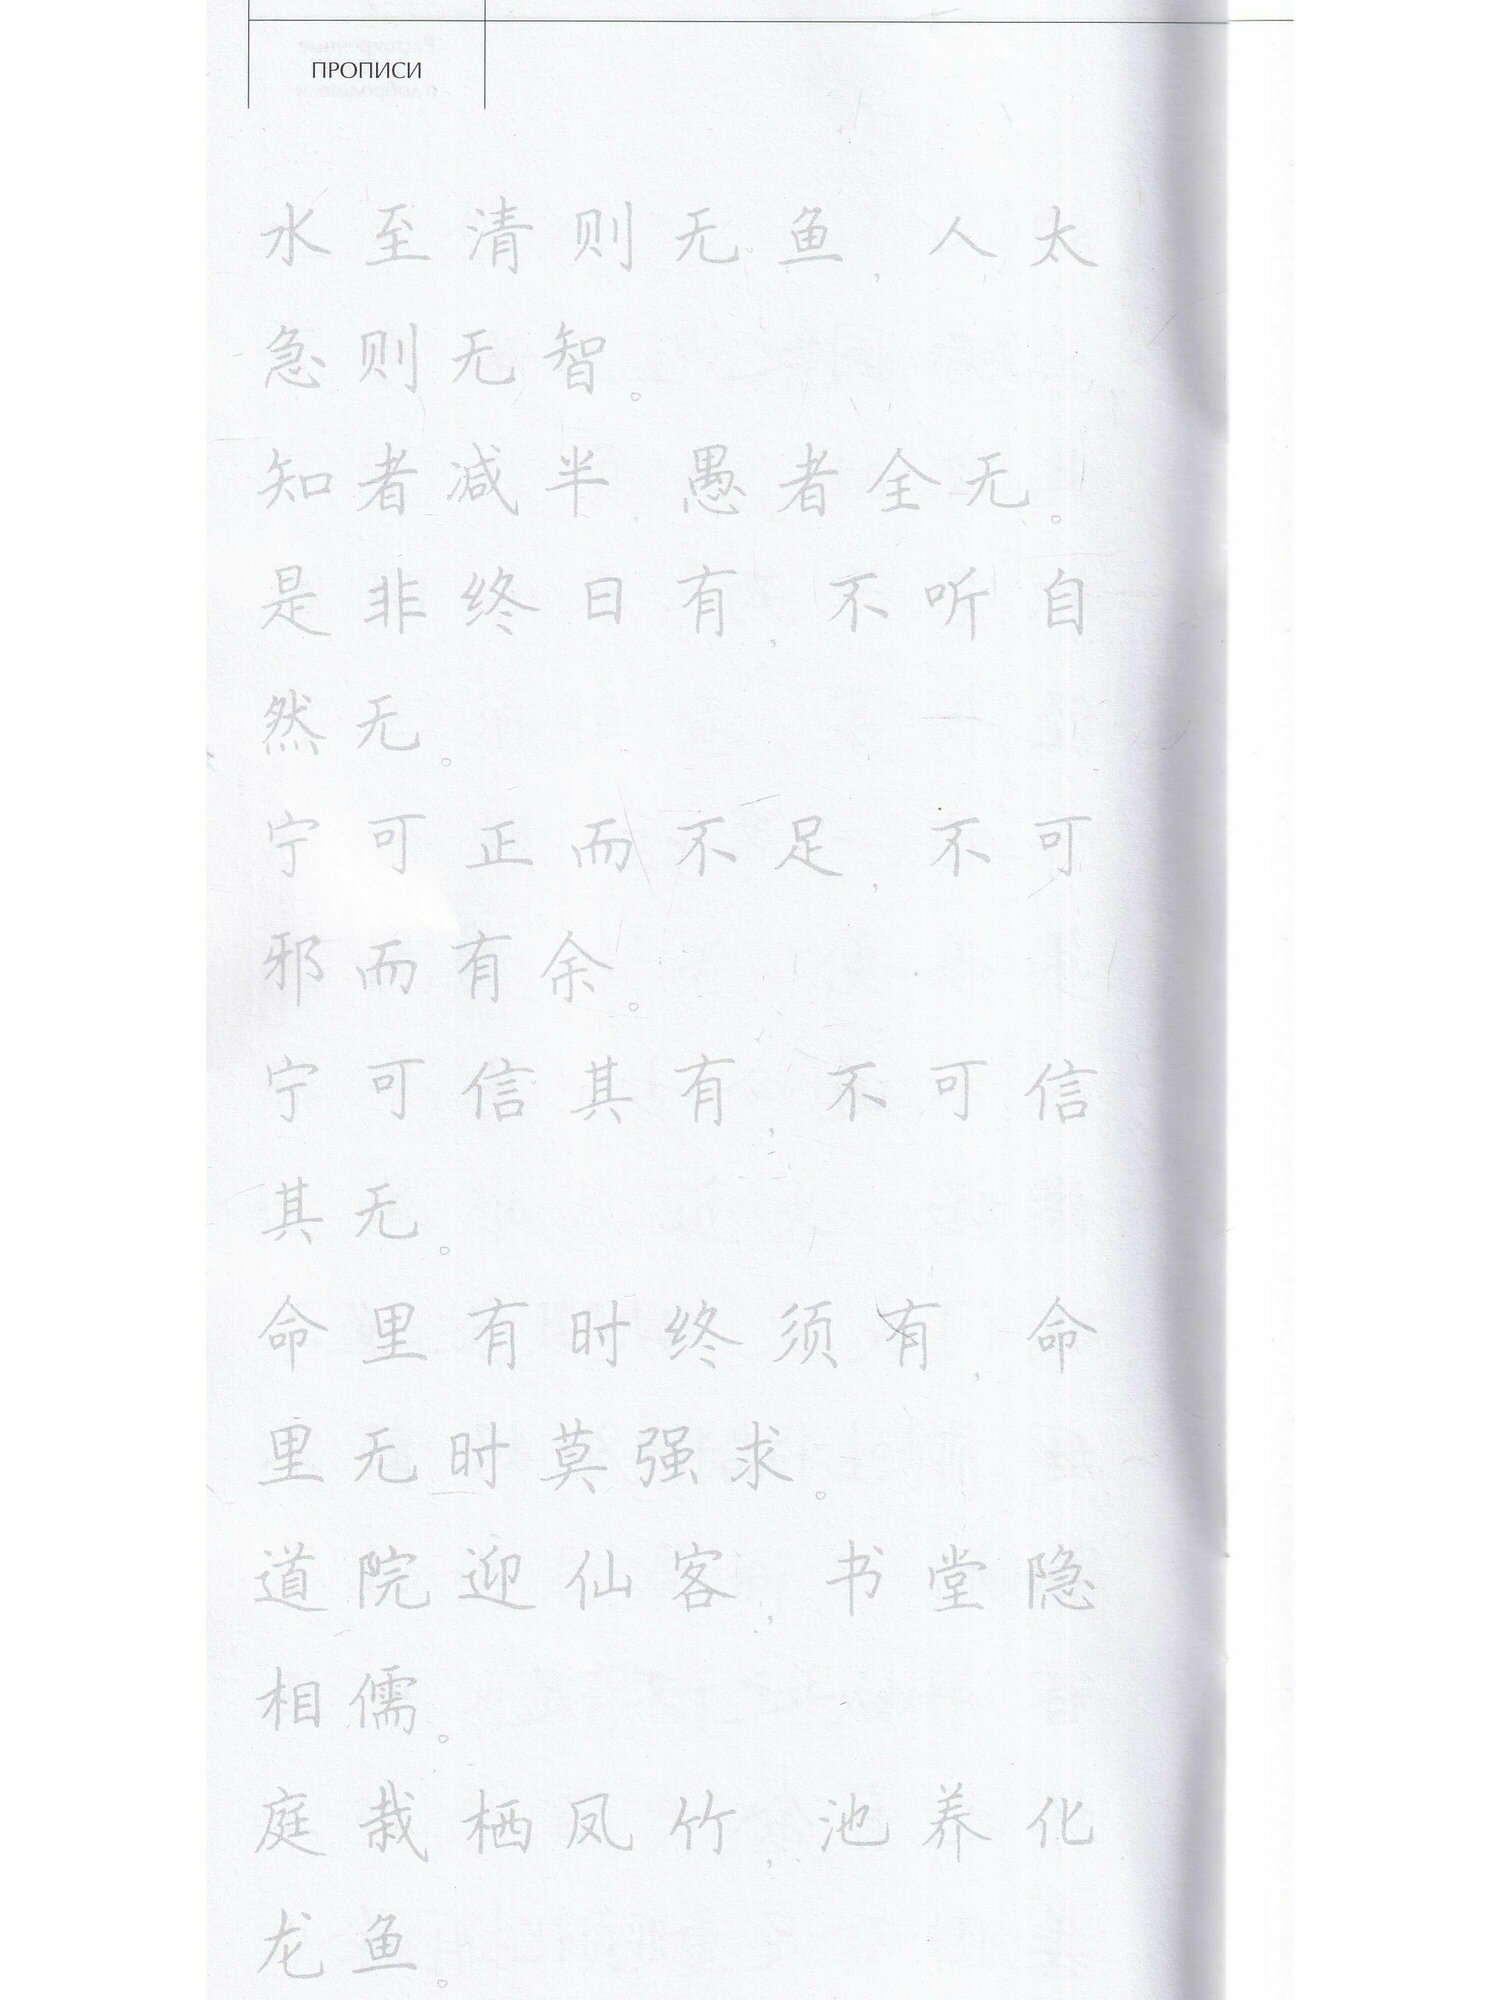 ПРОПИСИ
水至清则无鱼，人太
急则无智。
知者减半，愚者全无。
是非终日有，不听自
然无。
宁可正而不足，不可
邪而有余。
宁可信其有，不可信
其无。
命里有时终须有，命
里无时莫强求。
道院迎仙客，书堂隐
相儒。
庭栽栖凤竹，池养化
龙鱼。